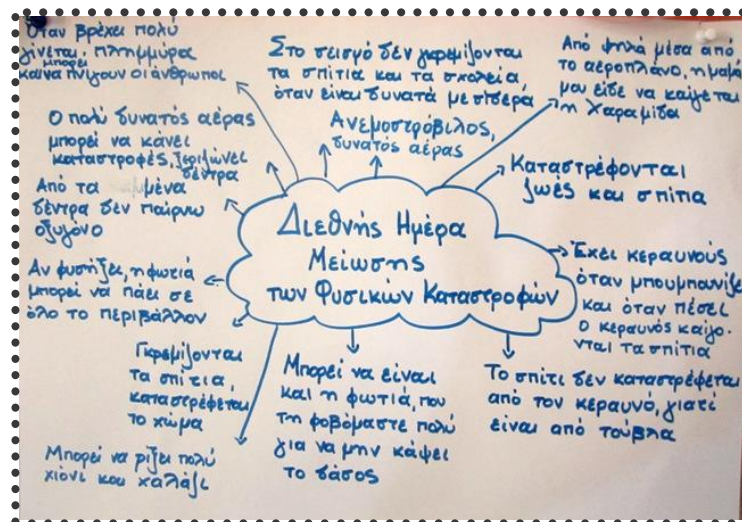 Όταν βρέχει πολύ
γίνεται πλημμύρα
μπορεί
και να πνίγουν οι άνθρωποι
Στο σεισμό δεν γκρεμίζονται
τα σπίτια και τα σχολεία,
όταν είναι δυνατά με σίδερα
Από ψηλά μέσα από
το αεροπλάνο, η μαμά
μου είδε να καίγεται
η Χαραμίδα
Ο πολύ δυνατός αέρας
μπορεί να κάνει
καταστροφές, ξεριζώνει
δέντρα
Ανεμοστρόβιλος,
δυνατός αέρας
Καταστρέφονται
ζωές και σπίτια
Από τα μένα
δέντρα δεν παίρνω
οξυγόνο
Διεθνής Ημέρα
Μείωσης
των Φυσικών Καταστροφών
Έχει κεραυνούς
όταν μπουμπουνίζει
και όταν πέσει
ο κεραυνός καίγο-
νται τα σπίτια
Αν φυσήξει, η φωτιά
μπορεί να πάει σε
όλο το περιβάλλον
Γκρεμίζονται
τα σπίτια,
καταστρέφεται
το χώμα
Μπορεί να είναι
και η φωτιά, που
τη φοβόμαστε πολύ
για να μην κάψει
το δάσος
Το σπίτι δεν καταστρέφεται
από τον κεραυνό, γιατί
είναι από τούβλα
Μπορεί να ρίξει πολύ
χιόνι και χαλάζι